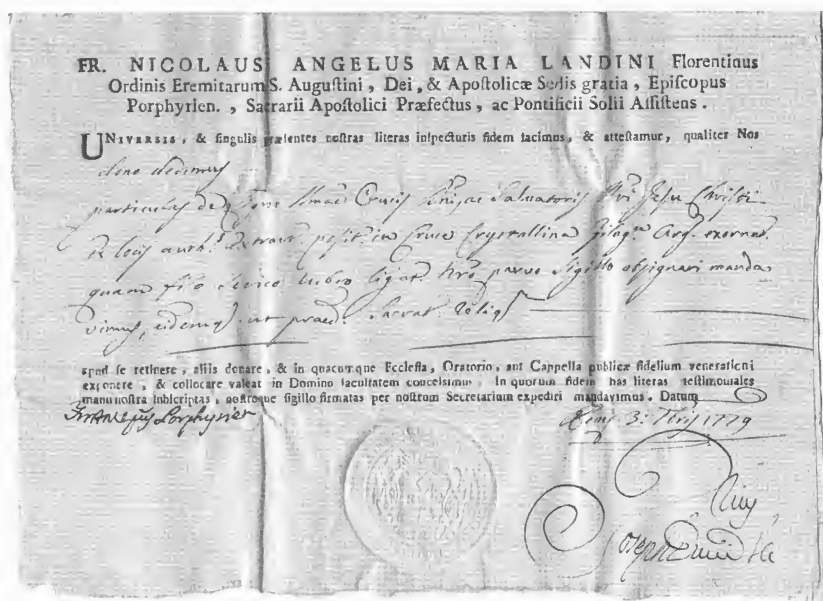 FR. NICOLAUS ANGELUS MARIA LANDINI Florentinus
Ordinis Eremitarum S. Auguſtini, Dei, & Apoſtolicæ Sedis gratia, Epiſcopus
Porphyrien., Sacrarii Apoſtolici Præfectus, ac Pontificii Solii Aſſiſtens.
UNIVERSIS, & ſingulis præſentes noſtras literas inſpecturis fidem facimus, & atteſtamur, qualiter Nos
dono dedimus
particulas de Crucis Salvatoris Jeſu Chriſti
ex locis extract. poſit. in Cruce Cryſtallina Arg. exornat.
quam rubro ligat. parvo ſigillo obſignari manda
vimus, ut Sacrat. Reliq.
apud ſe retinere, aliis donare, & in quacumque Eccleſia, Oratorio, aut Cappella publicæ fidelium venerationi
exponere, & collocare valeat in Domino facultatem conceſſimus. In quorum fidem has literas teſtimoniales
manu noſtra ſubſcriptas, noſtroque ſigillo firmatas per noſtrum Secretarium expediri mandavimus. Datum
Porphyrien 3. 1779
Joseph